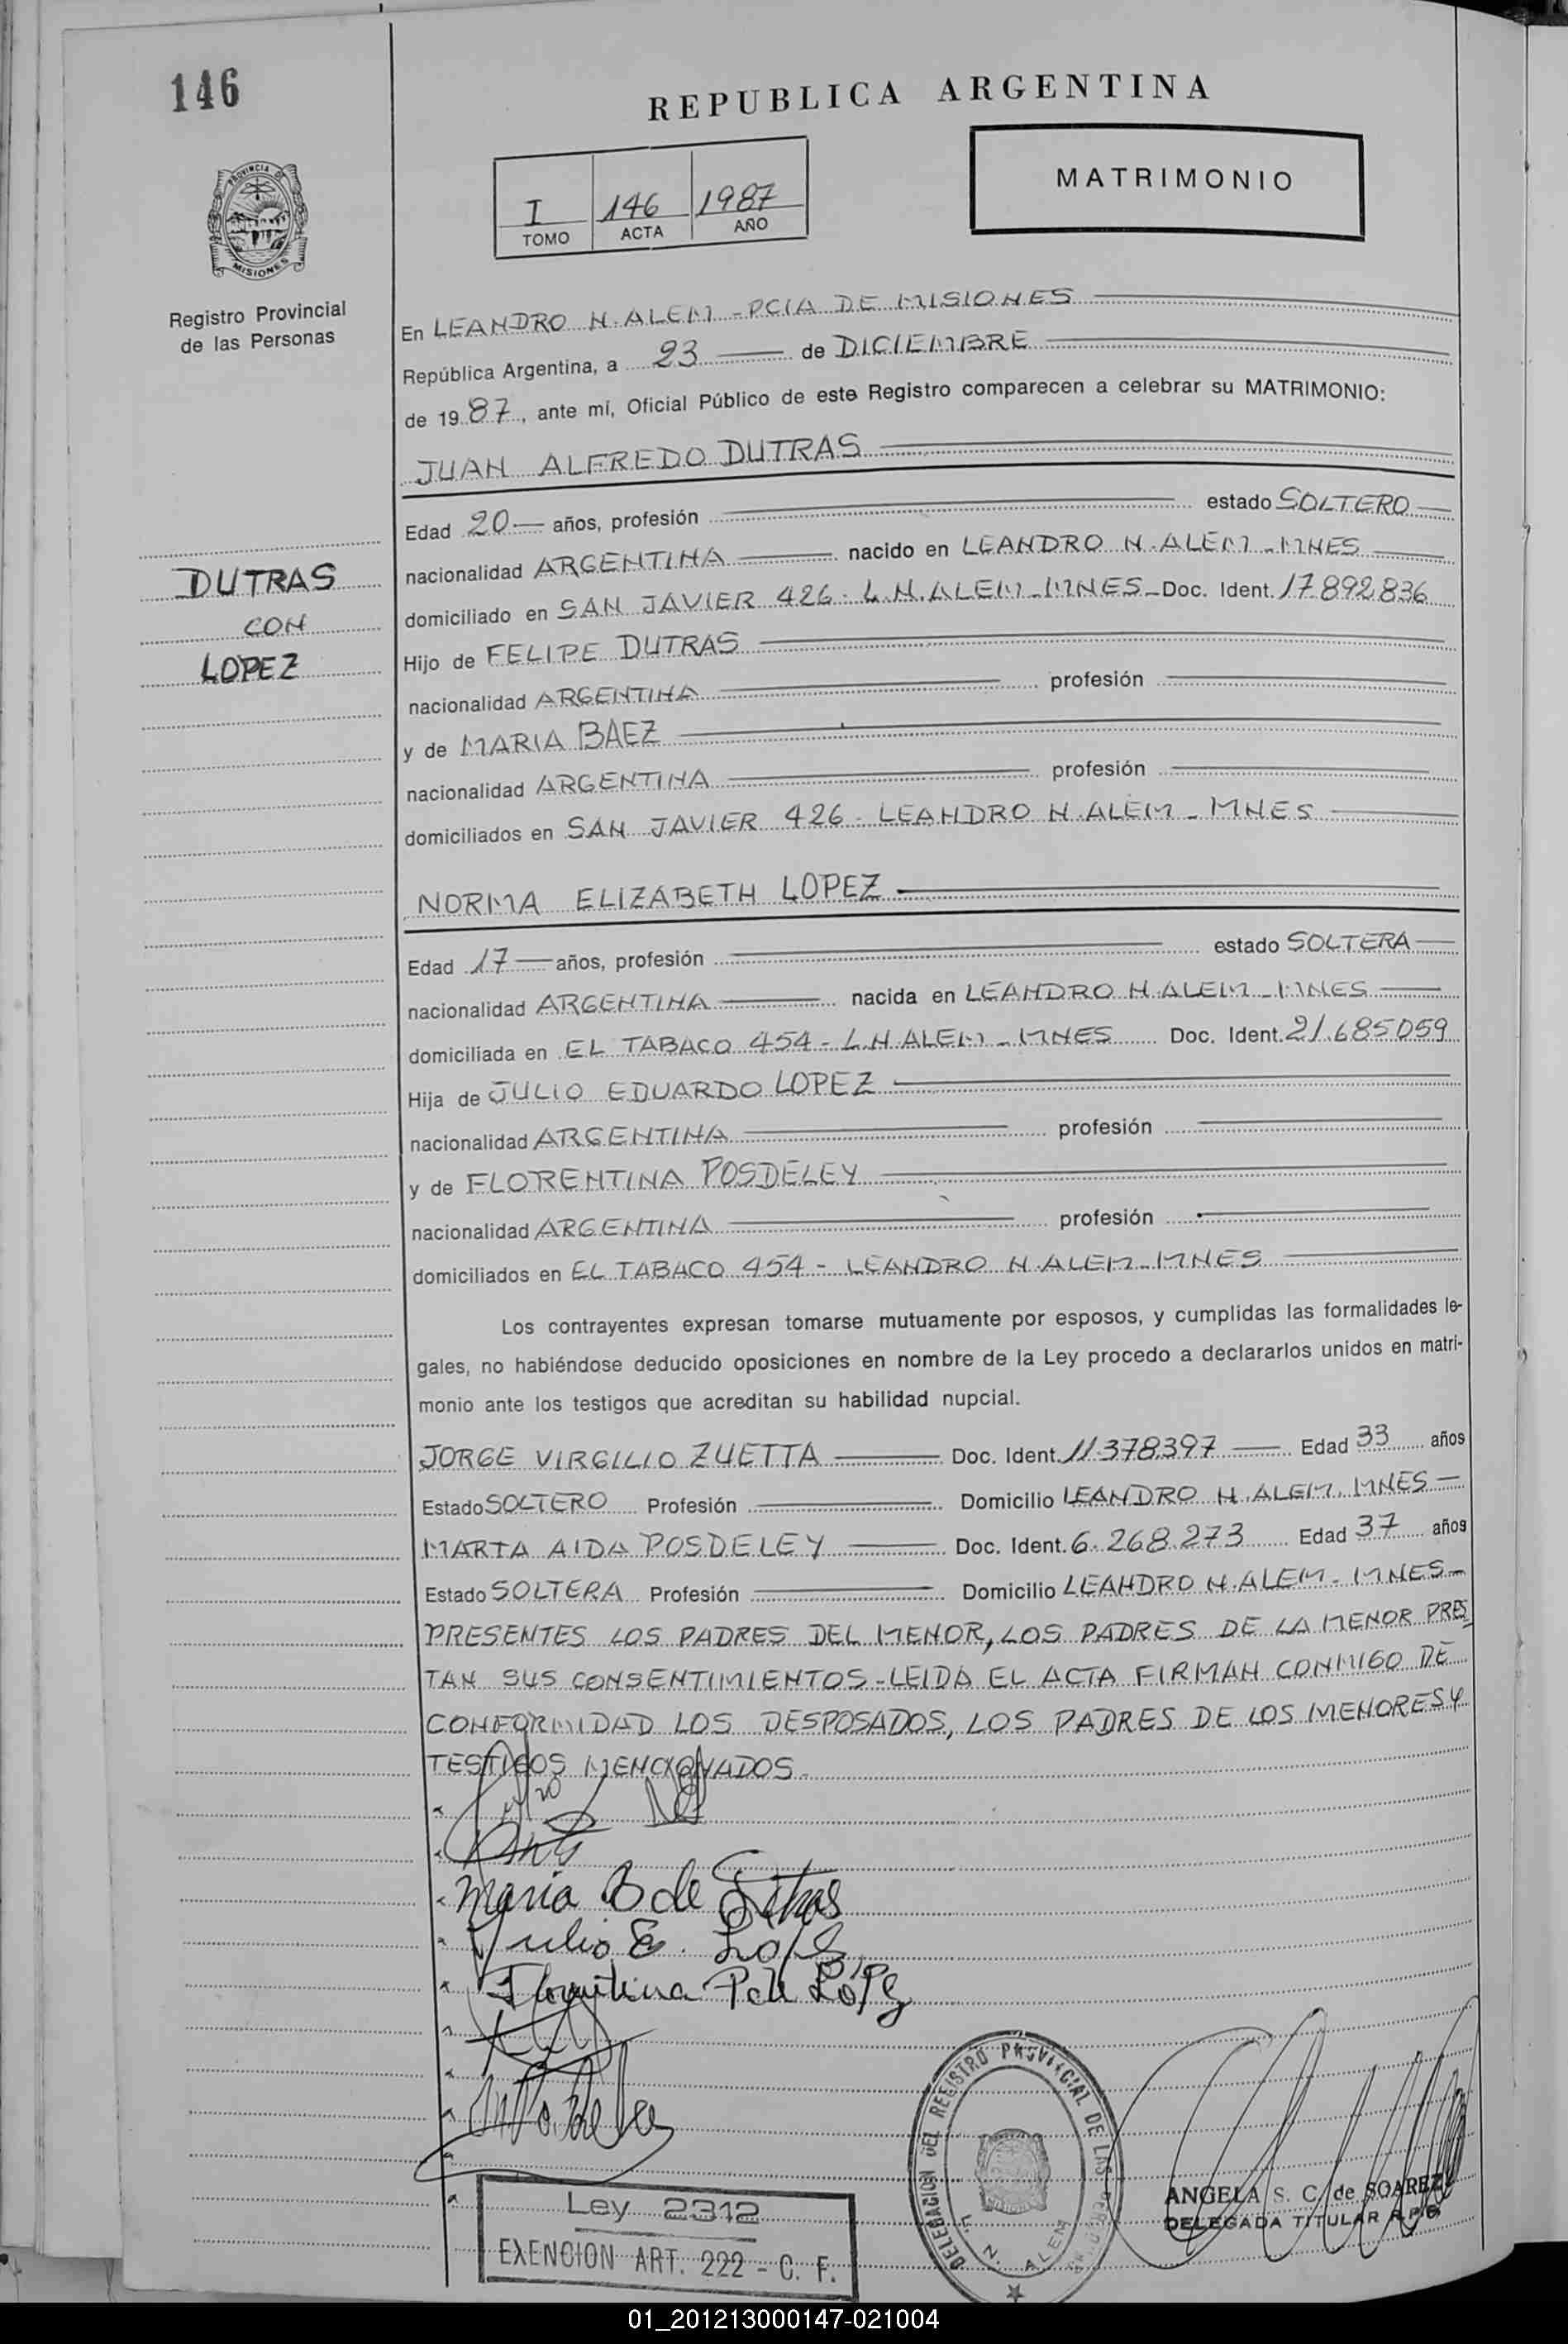 146
REPUBLICA ARGENTINA
PROVINCIA DE
MISIONES
I 146 1987
TOMO ACTA AÑO
MATRIMONIO
Registro Provincial
de las Personas
En LEANDRO N. ALEM - PCIA DE MISIONES
República Argentina, a 23 de DICIEMBRE
de 1987, ante mí, Oficial Público de este Registro comparecen a celebrar su MATRIMONIO:
JUAN ALFREDO DUTRAS
Edad 20 años, profesión estado SOLTERO
DUTRAS
CON
LOPEZ
nacionalidad ARGENTINA nacido en LEANDRO N. ALEM - MNES
domiciliado en SAN JAVIER 426 - L.N. ALEM - MNES - Doc. Ident. 17.892.836
Hijo de FELIPE DUTRAS
nacionalidad ARGENTINA profesión
y de MARIA BAEZ
nacionalidad ARGENTINA profesión
domiciliados en SAN JAVIER 426 - LEANDRO N. ALEM - MNES
NORMA ELIZABETH LOPEZ
Edad 17 años, profesión estado SOLTERA
nacionalidad ARGENTINA nacida en LEANDRO N. ALEM - MNES
domiciliada en EL TABACO 454 - L.N. ALEM - MNES Doc. Ident. 21.685.059
Hija de JULIO EDUARDO LOPEZ
nacionalidad ARGENTINA profesión
y de FLORENTINA POSDELEY
nacionalidad ARGENTINA profesión
domiciliados en EL TABACO 454 - LEANDRO N. ALEM - MNES
Los contrayentes expresan tomarse mutuamente por esposos, y cumplidas las formalidades le-
gales, no habiéndose deducido oposiciones en nombre de la Ley procedo a declararlos unidos en matri-
monio ante los testigos que acreditan su habilidad nupcial.
JORGE VIRGILIO ZUETTA Doc. Ident. 11.378.397 Edad 33 años
Estado SOLTERO Profesión Domicilio LEANDRO N. ALEM. MNES
MARTA AIDA POSDELEY Doc. Ident. 6.268.273 Edad 37 años
Estado SOLTERA Profesión Domicilio LEANDRO N. ALEM - MNES
PRESENTES LOS PADRES DEL MENOR, LOS PADRES DE LA MENOR PRES
TAN SUS CONSENTIMIENTOS - LEIDA EL ACTA FIRMAN CONMIGO DE
CONFORMIDAD LOS DESPOSADOS, LOS PADRES DE LOS MENORES Y
TESTIGOS MENCIONADOS.
Maria B de Dutras
Julio E. Lopez
Florentina P de López
DELEGACION DEL REGISTRO PROVINCIAL DE LAS PERSONAS
L. N. ALEM
ANGELA S. C. de SOAREZ
DELEGADA TITULAR R.P.P.
Ley 2312
EXENCION ART. 222 - C. F.
01_201213000147-021004